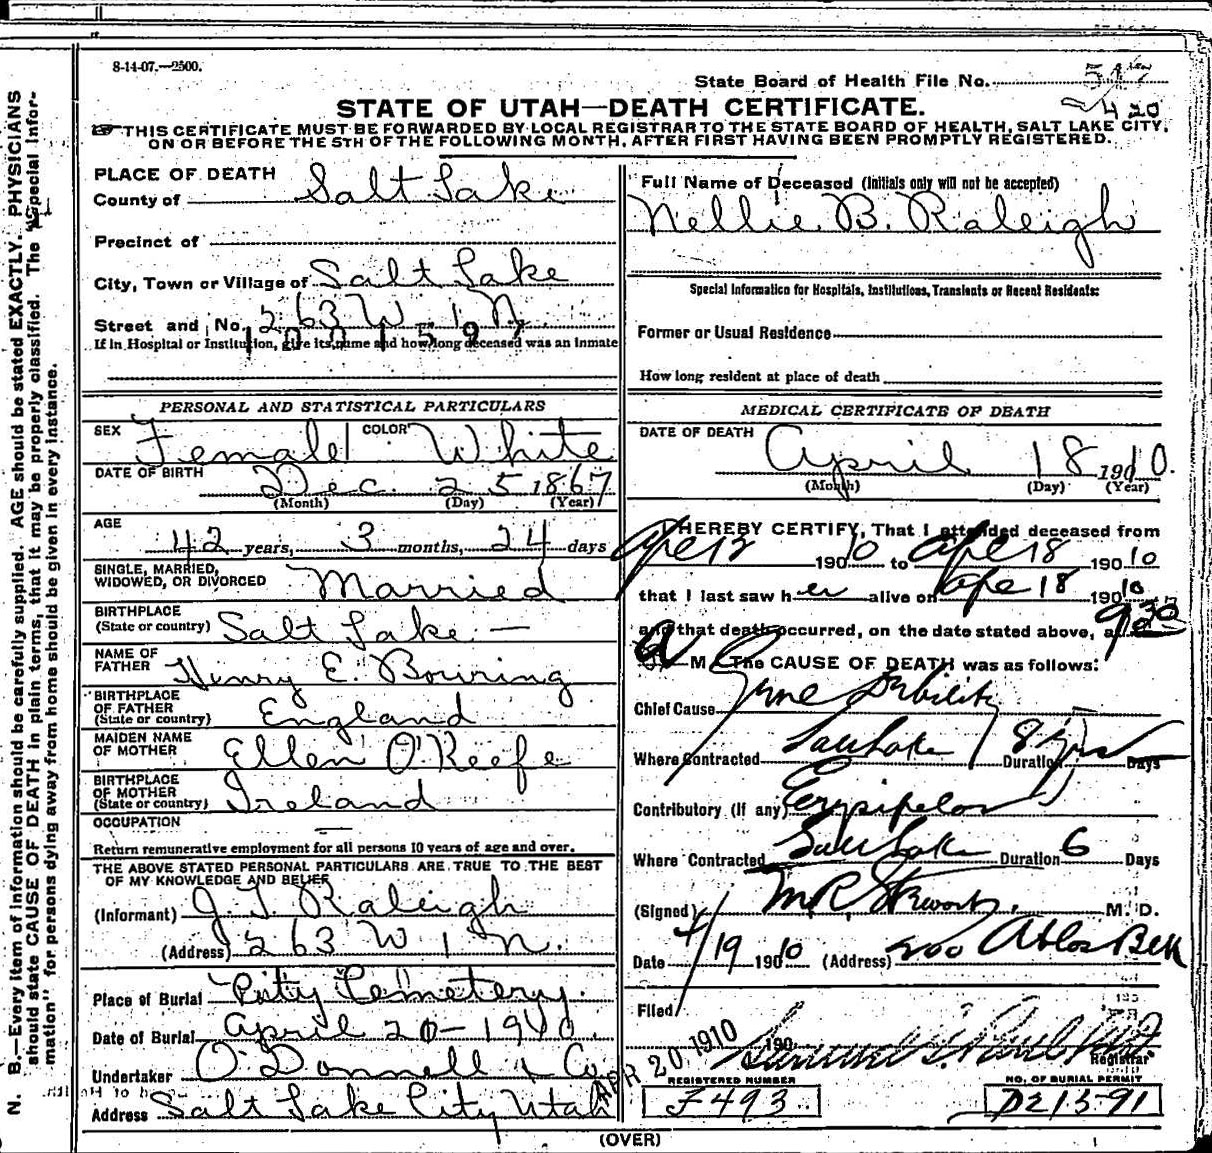 8-14-07.—2500.
State Board of Health File No. 517
420
STATE OF UTAH—DEATH CERTIFICATE.
☞THIS CERTIFICATE MUST BE FORWARDED BY LOCAL REGISTRAR TO THE STATE BOARD OF HEALTH, SALT LAKE CITY,
ON OR BEFORE THE 5TH OF THE FOLLOWING MONTH, AFTER FIRST HAVING BEEN PROMPTLY REGISTERED.
PLACE OF DEATH
County of Salt Lake
Precinct of
City, Town or Village of Salt Lake
Street and No. 263 W 1 N.
1001597
If in Hospital or Institution, give its name and how long deceased was an inmate
Full Name of Deceased (Initials only will not be accepted)
Nellie B. Raleigh
Special Information for Hospitals, Institutions, Transients or Recent Residents:
Former or Usual Residence
How long resident at place of death
PERSONAL AND STATISTICAL PARTICULARS
SEX Female COLOR White
DATE OF BIRTH Dec. 25 1867
(Month) (Day) (Year)
AGE
42 years, 3 months, 24 days
SINGLE, MARRIED,
WIDOWED, OR DIVORCED Married
BIRTHPLACE
(State or country) Salt Lake —
NAME OF
FATHER Henry E. Bowring
BIRTHPLACE
OF FATHER
(State or country) England
MAIDEN NAME
OF MOTHER Ellen O'Keefe
BIRTHPLACE
OF MOTHER
(State or country) Ireland
OCCUPATION —
Return remunerative employment for all persons 10 years of age and over.
THE ABOVE STATED PERSONAL PARTICULARS ARE TRUE TO THE BEST
OF MY KNOWLEDGE AND BELIEF
(Informant) J. T. Raleigh
(Address) 263 W 1 N.
Place of Burial City Cemetery.
Date of Burial April 20 - 1910.
Undertaker O'Donnell & Co.
Address Salt Lake City Utah
MEDICAL CERTIFICATE OF DEATH
DATE OF DEATH April 18 1910.
(Month) (Day) (Year)
I HEREBY CERTIFY, That I attended deceased from
Apr 12 190 10 to Apr 18 190 10
that I last saw h er alive on Apr 18 190 10
and that death occurred, on the date stated above, at 9 30
A M. The CAUSE OF DEATH was as follows:
Chief Cause Debility
Where Contracted Salt Lake Duration 8 yrs Days
Contributory (If any) Erysipelas
Where Contracted Salt Lake Duration 6 Days
(Signed) M. R. Stewart, M. D.
Date 4/19 190 10 (Address) 200 Atlas Blk
Filed APR 20 1910 190
Registrar
REGISTERED NUMBER
F 493
NO. OF BURIAL PERMIT
D21591
(OVER)
N. B.—Every item of information should be carefully supplied. AGE should be stated EXACTLY. PHYSICIANS
should state CAUSE OF DEATH in plain terms, that it may be properly classified. The "Special Infor-
mation" for persons dying away from home should be given in every instance.